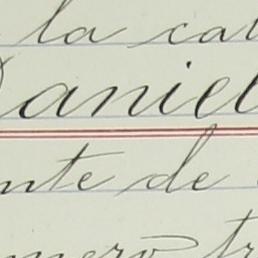 la cal
Daniel
nte de
mero tr